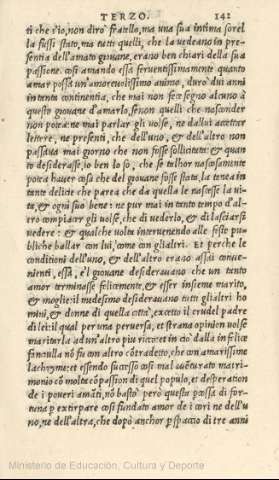 TERZO. 141
ti che s'io, non diro' fratello, ma una sua intima sorel
la fussi stato, ma tutti quelli, che la vedeano in pre=
sentia dell'amato giovane, erano ben chiari della sua
passione. così amando essa ferventissimamente quanto
amar possa un'amorevolissimo animo, duro' dui anni
in tanta continentia, che mai non fece segno alcuno à
questo giovane d'amarlo, senon quelli che nasconder
non potea: ne mai parlar gli volse, ne da lui accettar
lettere, ne presenti, che dell'uno, & dell'altro non
passava mai giorno che non fosse sollicitata: & quan
to desiderasse, io ben lo sò, che se talhor nascosamente
potea haver cosa che del giovane fosse stata, la tenea in
tante delitie che parea che da quella le nascesse la ui=
ta, & ogni suo bene: ne pur mai in tanto tempo d'al
tro compiacer gli volse, che di vederlo, & di lasciarsi
vedere: & qualche volta intervenendo alle feste pu=
bliche ballar con lui, come con glialtri. Et perche le
conditioni dell'uno, & dell'altro erano assai conve=
nienti, essa, e'l giovane desideravano che un tanto
amor terminasse felicemente, & esser insieme marito,
& moglie: il medesimo desideravano tutti glialtri ho
mini, & donne di quella città, eccetto il crudel padre
di lei: il qual per una perversa, et strana opinion volse
maritarla ad un'altro piu ricco: et in ciò dalla infelice
fanciulla nò fu con altro còtradetto, che con amarissime
lachryme: et essendo successo così mal aventurato matri=
monio cò molta còpassion di quel populo, et desperation
de i poveri amàti, nò bastò però questa percossa di for=
tuna p extirpare così fundato amor de i cori ne dell'u
no, ne dell'altra, che dopò anchor p spaccio di tre anni
Ministerio de Educación, Cultura y Deporte